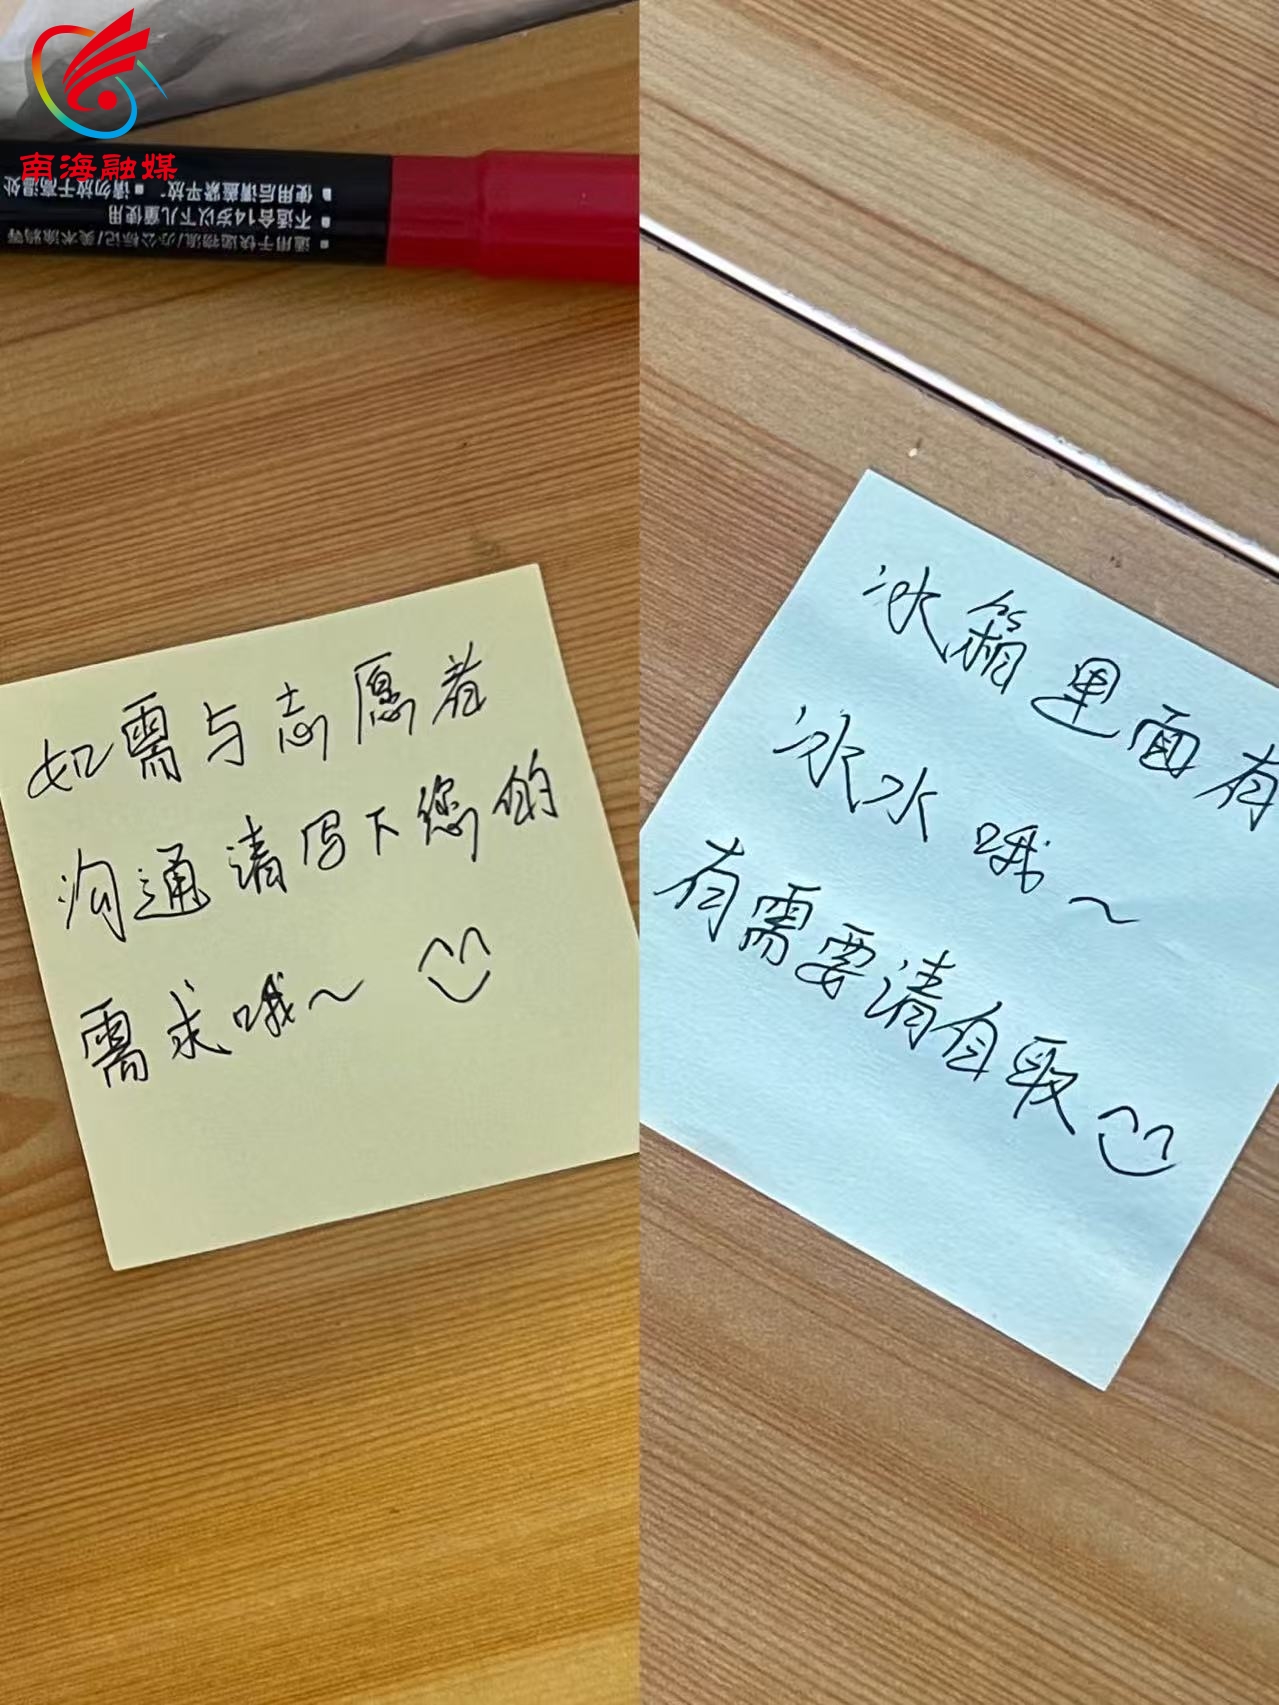 南海融媒
适用于快递物流/办公标记/美术涂鸦等
不适合14岁以下儿童使用
使用后请盖紧平放。 请勿放于高温处
如需与志愿者
沟通请写下您的
需求哦～
冰箱里面有
冰水哦～
有需要请自取